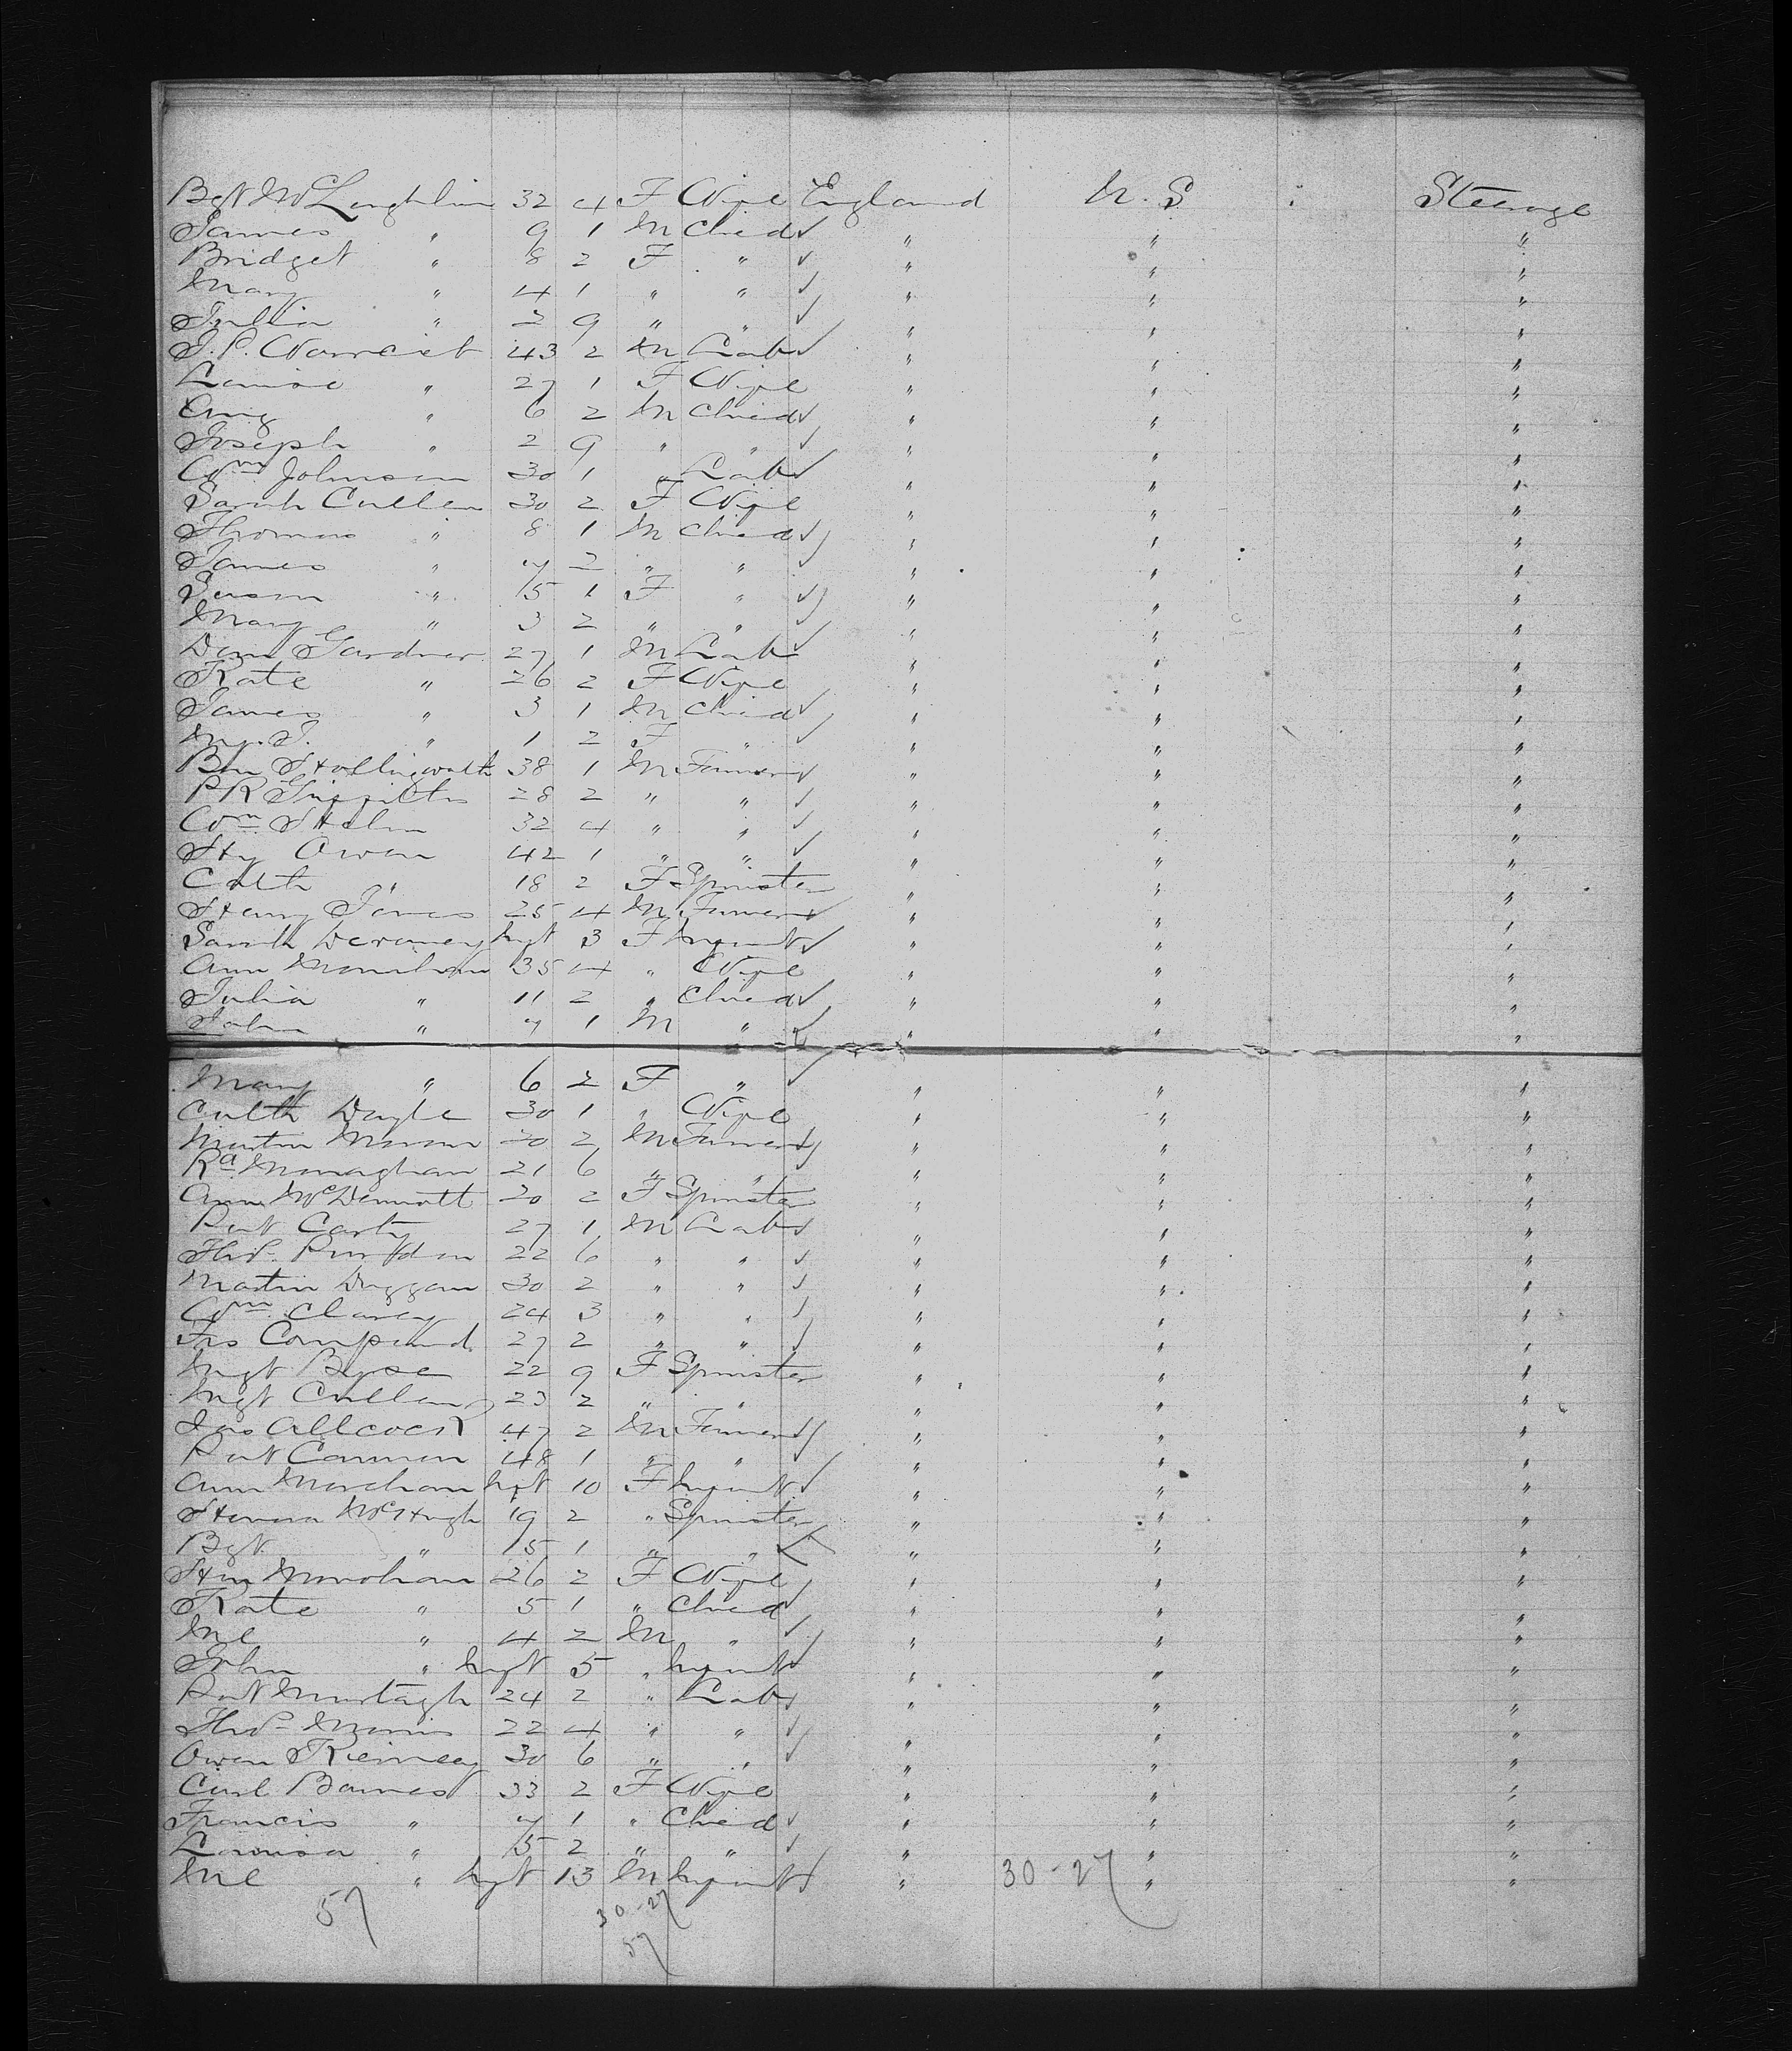 Bgt McLoughlin 32 4 F Wife England U.S : Steerage
James " 9 1 M Child ✓ " " "
Bridget " 8 2 F " ✓ " " "
Mary " 4 1 " " ✓ " " "
Julia " 2 9 " " ✓ " " "
43 2 M Lab ✓ " " "
Louise " 27 1 F Wife " " "
" 6 2 M Child ✓ " " "
Joseph " 2 9 " " ✓ " " "
Wm Johnson 30 1 " Lab ✓ " " "
Sarah Cullen 30 2 F Wife " " "
Thomas " 8 1 M Child ✓ " " "
James " 7 2 " " ✓ " " "
Susan " 5 1 F " ✓ " " "
Mary " 3 2 " " ✓ " " "
Gardner 27 1 M Lab " " "
Kate " 26 2 F Wife " " "
James " 3 1 M Child ✓ " " "
" 1 2 F " ✓ " " "
Ben Hollingworth 38 1 M Farmer ✓ " " "
P R Griffiths 28 2 " " ✓ " " "
Wm 32 4 " " ✓ " " "
Hy Owen 42 1 " " ✓ " " "
Cath " 18 2 F Spinster " " "
Henry Jones 25 4 M Farmer ✓ " " "
Sarah Devaney Inft 3 F Infant ✓ " " "
Ann Monihan 35 4 " Wife " " "
Julia " 11 2 " Child ✓ " " "
John " 7 1 M " ✓ " " "
Mary " 6 2 F " ✓ " " "
Cath Doyle 30 1 " Wife " " "
Martin Moran 20 2 M Farmer ✓ " " "
Rd Monaghan 21 6 " " ✓ " " "
Ann McDermott 20 2 F Spinster " " "
Pat Carty 27 1 M Lab ✓ " " "
Thos 22 6 " " ✓ " " "
Martin Duggan 30 2 " " ✓ " " "
Wm Clancy 24 3 " " ✓ " " "
27 2 " " ✓ " " "
Mgt 22 9 F Spinster " " "
Mgt Cullen 23 2 " " " " "
Jas Allcock 47 2 M Farmer ✓ " " "
Pat Cannon 48 1 " " ✓ " " "
Ann Inft 10 F Infant ✓ " " "
McHugh 19 2 " Spinster " " "
Bgt " 15 1 " " ✓ " " "
26 2 F Wife " " "
Kate " 5 1 " Child ✓ " " "
Ml " 4 2 M " ✓ " " "
John " Inft 5 " Infant ✓ " " "
Pat Murtagh 24 2 " Lab ✓ " " "
Thos Morris 22 4 " " ✓ " " "
Owen Kierney 30 6 " " ✓ " " "
Barnes 33 2 F Wife " " "
Francis " 7 1 " Child ✓ " " "
Louisa " 5 2 " " ✓ " " "
Ml " Inft 13 M Infant ✓ " 30-27 " "
57 30-27
57